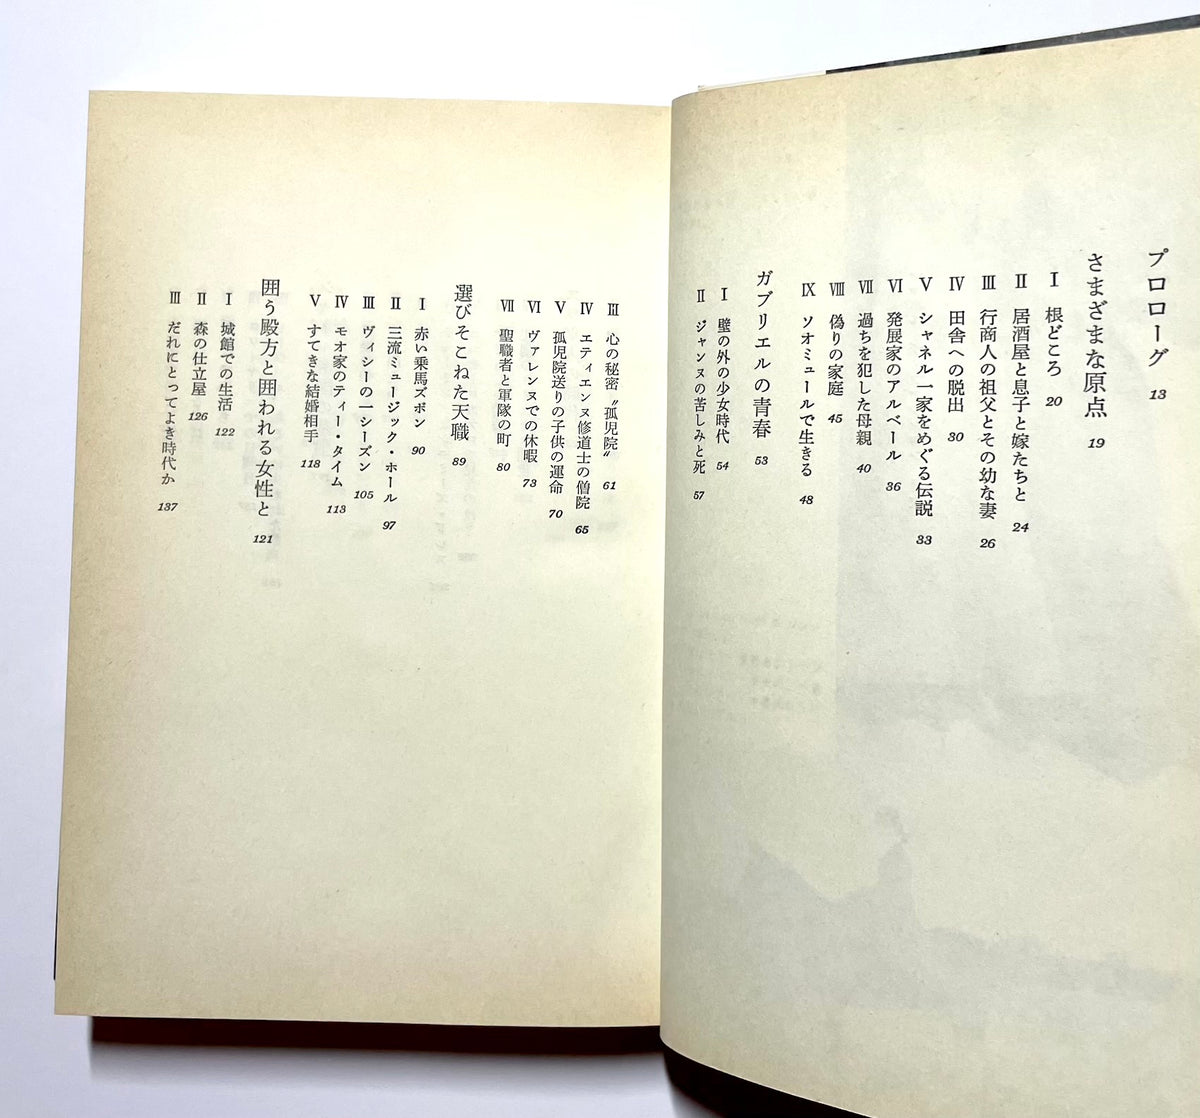 プロローグ 13
さまざまな原点 19
Ⅰ 根どころ 20
Ⅱ 居酒屋と息子と嫁たちと 24
Ⅲ 行商人の祖父とその幼な妻 26
Ⅳ 田舎への脱出 30
Ⅴ シャネル一家をめぐる伝説 33
Ⅵ 発展家のアルベール 36
Ⅶ 過ちを犯した母親 40
Ⅷ 偽りの家庭 45
Ⅸ ソオミュールで生きる 48
ガブリエルの青春 53
Ⅰ 壁の外の少女時代 54
Ⅱ ジャンヌの苦しみと死 57
Ⅲ 心の秘密〝孤児院〟 61
Ⅳ エティエンヌ修道士の僧院 65
Ⅴ 孤児院送りの子供の運命 70
Ⅵ ヴァレンヌでの休暇 73
Ⅶ 聖職者と軍隊の町 80
選びそこねた天職 89
Ⅰ 赤い乗馬ズボン 90
Ⅱ 三流ミュージック・ホール 97
Ⅲ ヴィシーの一シーズン 105
Ⅳ モオ家のティー・タイム 113
Ⅴ すてきな結婚相手 118
囲う殿方と囲われる女性と 121
Ⅰ 城館での生活 122
Ⅱ 森の仕立屋 126
Ⅲ だれにとってよき時代か 137